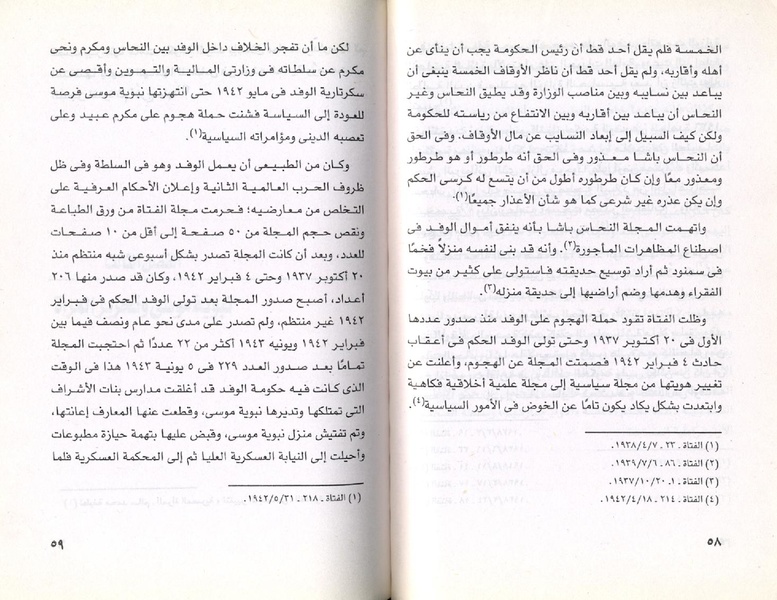 الخمسة فلم يقل أحد قط أن رئيس الحكومة يجب أن ينأى عن
أهله وأقاربه، ولم يقل أحد قط أن ناظر الأوقاف الخمسة ينبغى أن
يباعد بين نسايبه وبين مناصب الوزارة وقد يطيق النحاس وغير
النحاس أن يباعد بين أقاربه وبين الانتفاع من رياسته للحكومة
ولكن كيف السبيل إلى إبعاد النسايب عن مال الأوقاف. وفى الحق
أن النحاس باشا معذور وفى الحق أنه طرطور أو هو طرطور
ومعذور معًا وإن كان طرطوره أطول من أن يتسع له كرسى الحكم
وإن يكن عذره غير شرعى كما هو شأن الأعذار جميعًا(١).
واتهمت المجلة النحاس باشا بأنه ينفق أموال الوفد فى
اصطناع المظاهرات المأجورة(٢). وأنه قد بنى لنفسه منزلاً فخمًا
فى سمنود ثم أراد توسيع حديقته فاستولى على كثير من بيوت
الفقراء وهدمها وضم أراضيها إلى حديقة منزله(٣).
وظلت الفتاة تقود حملة الهجوم على الوفد منذ صدور عددها
الأول فى ٢٠ أكتوبر ١٩٣٧ وحتى تولى الوفد الحكم فى أعقاب
حادث ٤ فبراير ١٩٤٢ فصمتت المجلة عن الهجوم، وأعلنت عن
تغيير هويتها من مجلة سياسية إلى مجلة علمية أخلاقية فكاهية
وابتعدت بشكل يكاد يكون تامًا عن الخوض فى الأمور السياسية(٤).
(١) الفتاة . ٢٣ . ١٩٣٨/٤/٧.
(٢) الفتاة . ٨٦ . ١٩٣٩/٧/٦.
(٣) الفتاة . ١ . ١٩٣٧/١٠/٢٠.
(٤) الفتاة . ٢١٤ . ١٩٤٢/٤/١٨.
٥٨
لكن ما أن تفجر الخلاف داخل الوفد بين النحاس ومكرم ونحى
مكرم عن سلطاته فى وزارتى المالية والتموين وأقصى عن
سكرتارية الوفد فى مايو ١٩٤٢ حتى انتهزتها نبوية موسى فرصة
للعودة إلى السياسة فشنت حملة هجوم على مكرم عبيد وعلى
تعصبه الدينى ومؤامراته السياسية(١).
وكان من الطبيعى أن يعمل الوفد وهو فى السلطة وفى ظل
ظروف الحرب العالمية الثانية وإعلان الأحكام العرفية على
التخلص من معارضيه؛ فحرمت مجلة الفتاة من ورق الطباعة
ونقص حجم المجلة من ٥٠ صفحة إلى أقل من ١٠ صفحات
للعدد، وبعد أن كانت المجلة تصدر بشكل أسبوعى شبه منتظم منذ
٢٠ أكتوبر ١٩٣٧ وحتى ٤ فبراير ١٩٤٢، وكان قد صدر منها ٢٠٦
أعداد، أصبح صدور المجلة بعد تولى الوفد الحكم فى فبراير
١٩٤٢ غير منتظم، ولم تصدر على مدى نحو عام ونصف فيما بين
فبراير ١٩٤٢ ويونيه ١٩٤٣ أكثر من ٢٢ عددًا ثم احتجبت المجلة
تمامًا بعد صدور العدد ٢٢٩ فى ٥ يونية ١٩٤٣ هذا فى الوقت
الذى كانت فيه حكومة الوفد قد أغلقت مدارس بنات الأشراف
التى تمتلكها وتديرها نبوية موسى، وقطعت عنها المعارف إعانتها،
وتم تفتيش منزل نبوية موسى، وقبض عليها بتهمة حيازة مطبوعات
وأحيلت إلى النيابة العسكرية العليا ثم إلى المحكمة العسكرية فلما
(١) الفتاة . ٢١٨ . ١٩٤٢/٥/٣١.
٥٩